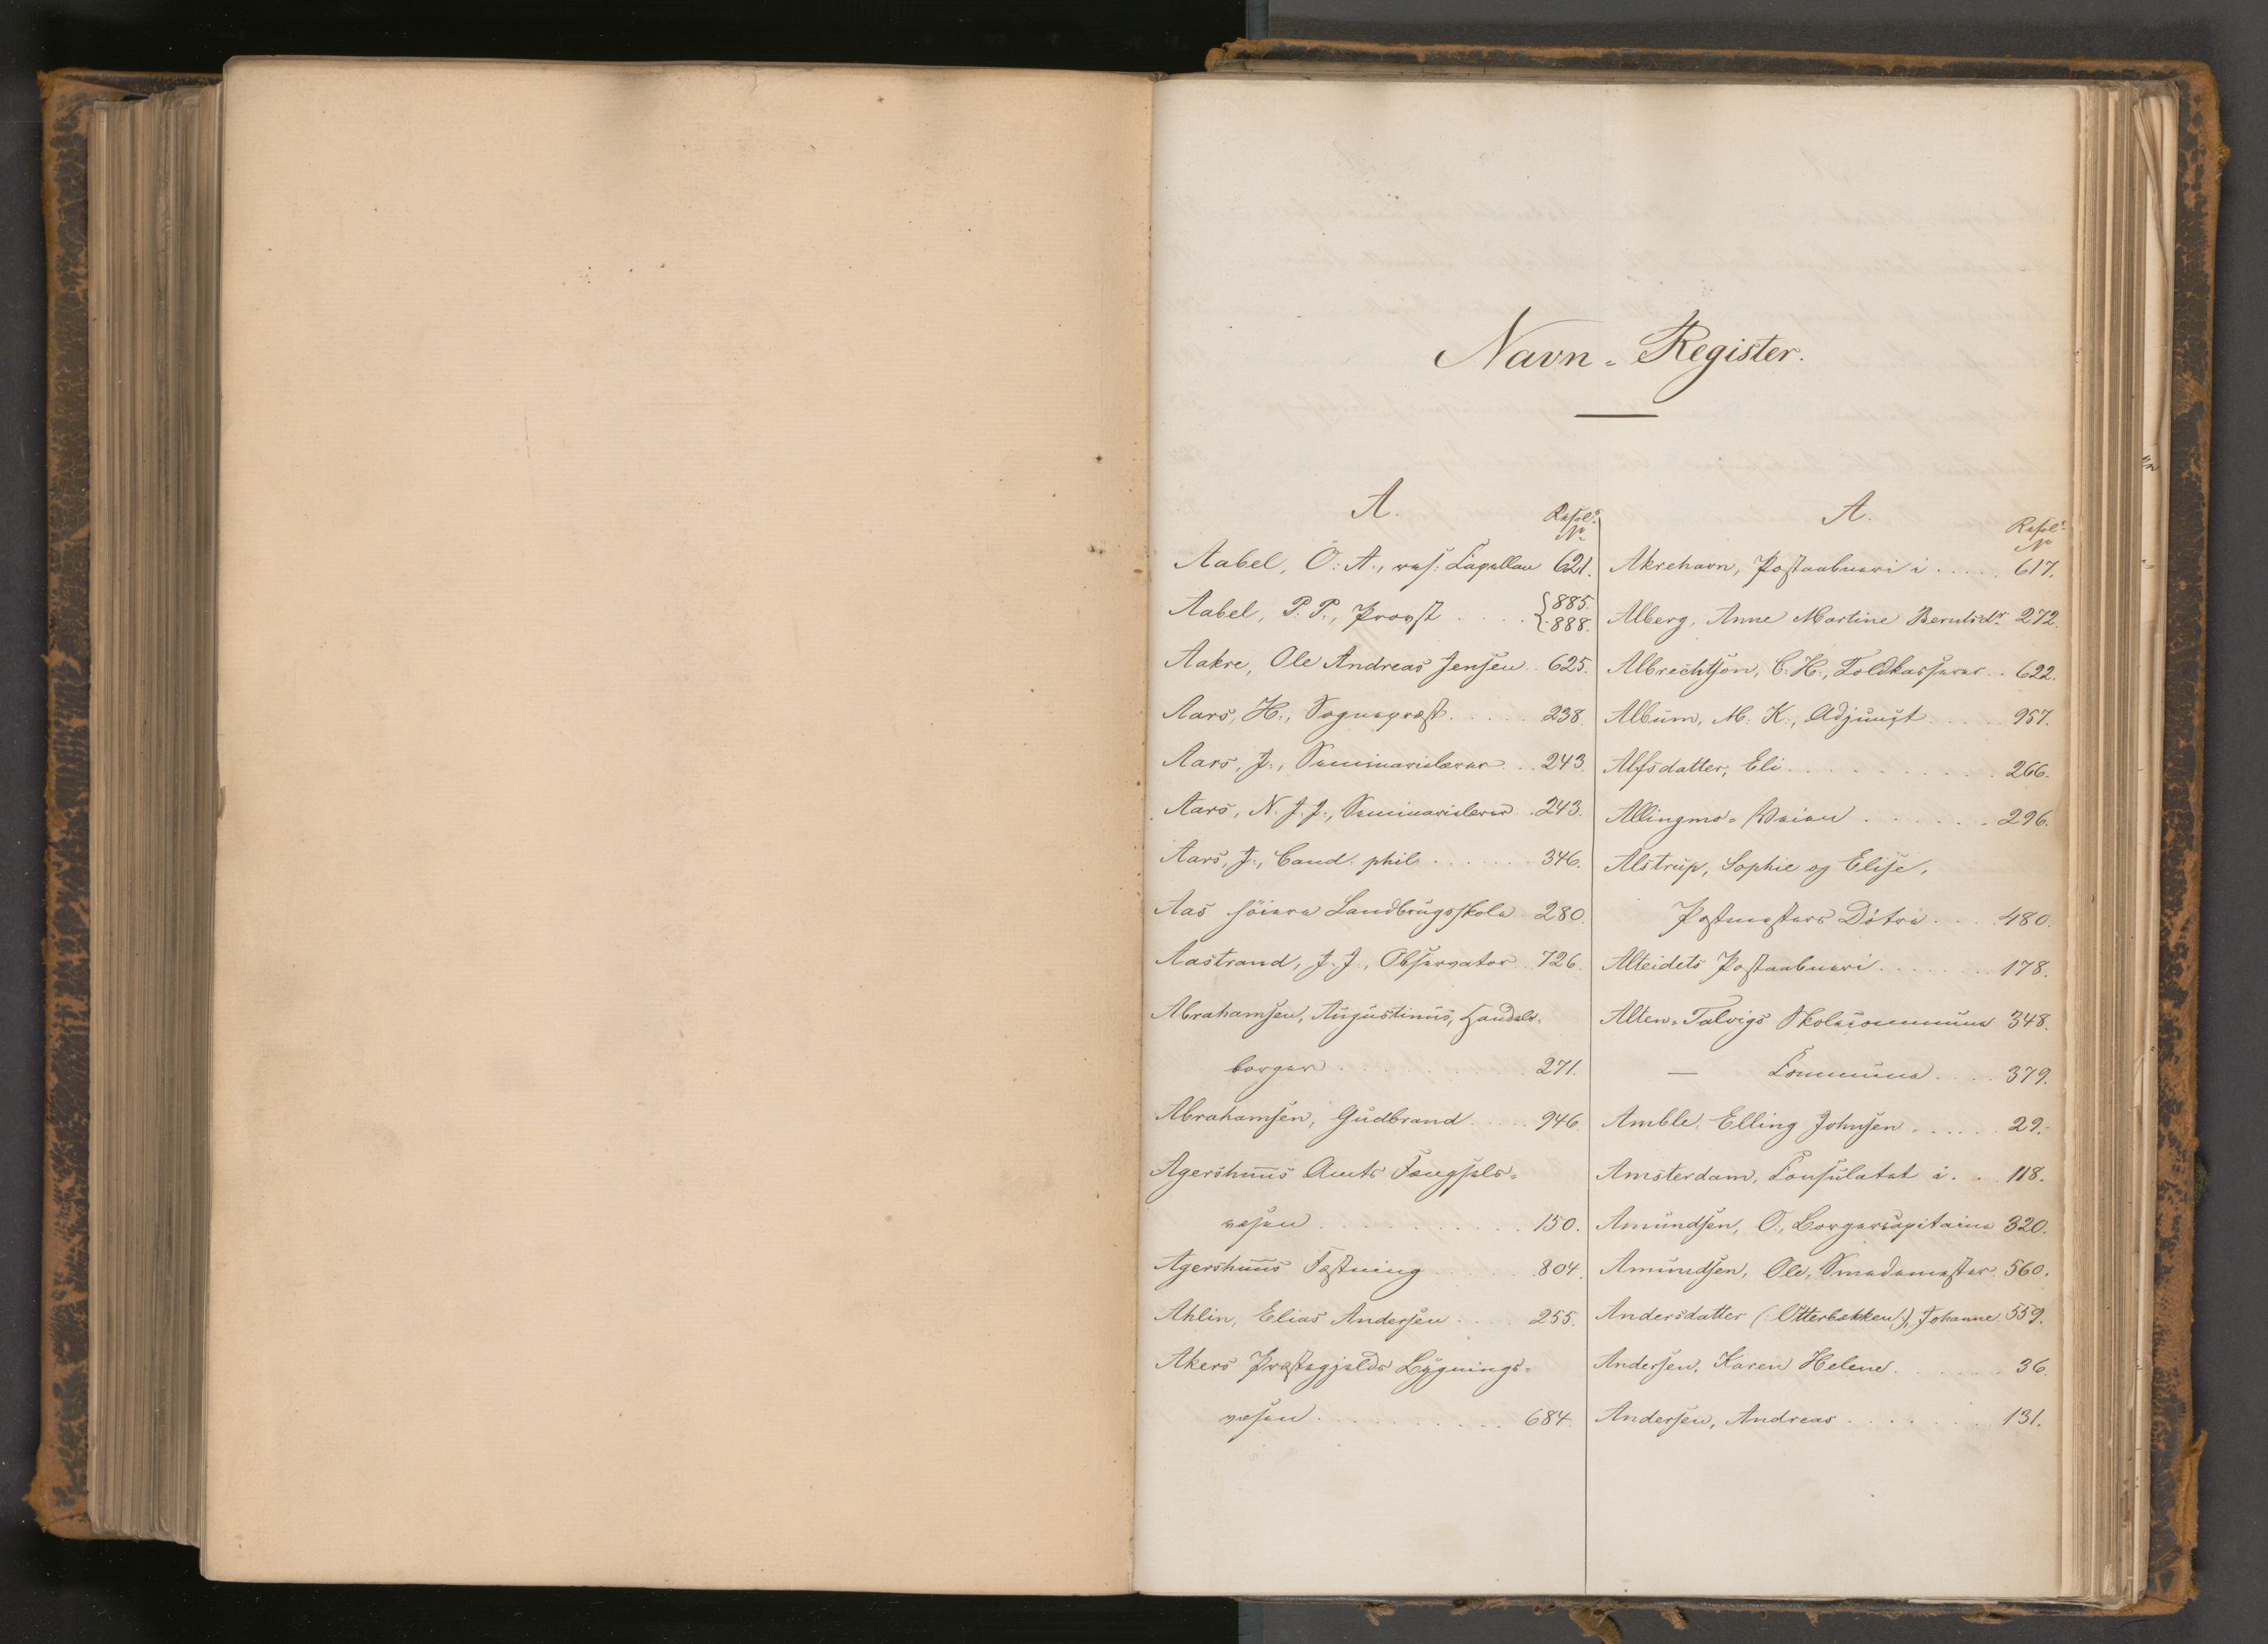 Navn-Register.
A.
Resol.
No
Aabel, O. A., res. Capellan 621.
Aabel, P. P., Provst . . . . {885. 888.
Aakre, Ole Andreas Jensen . . 625.
Aars, H., Sognepræst . . . . . 238.
Aars, J., Seminarielærer . . . 243.
Aars, N. J. J., Seminarielærer . 243.
Aars, J., Cand. phil. . . . . . . 346.
Aas høiere Landbrugsskole . 280.
Aastrand, J. J., Observator . . 726.
Abrahamsen, Augustinus, Handels-
borger . . . . . . . . . . 271.
Abrahamsen, Gudbrand . . . . . 946.
Agershuus Amts Fængsels-
væsen . . . . . . . . . . 150.
Agershuus Fæstning . . . . . . 804.
Ahlin, Elias Andersen . . . . 255.
Akers Præstegjelds Lygnings-
væsen . . . . . . . . . . 684.
A.
Resol.
No
Akrehavn, Postaabneri i . . . . . 617.
Alberg, Anne Martine Berntsdr. 272.
Albrechtson, C. H., Toldkasserer . . 622.
Album, M. K., Adjunct . . . . . 957.
Alfsdatter, Eli . . . . . . . . . . 266.
Allingmo-Veien . . . . . . . 296.
Alstrup, Sophie og Elise,
Postmesters Døtre . . . . 480.
Alteidets Postaabneri . . . . . . . 178.
Alten-Talvigs Skolecommune 348.
— Commune . . . . 379.
Amble, Elling Johnsen . . . . . . 29.
Amsterdam, Consulatet i . . 118.
Amundsen, O., Borgercapitaine 320.
Amundsen, Ole, Smedemester 560.
Andersdatter (: Otterbekken :), Johanne 559.
Andersen, Karen Helene . . . . . . . 36.
Andersen, Andreas . . . . . . . 131.